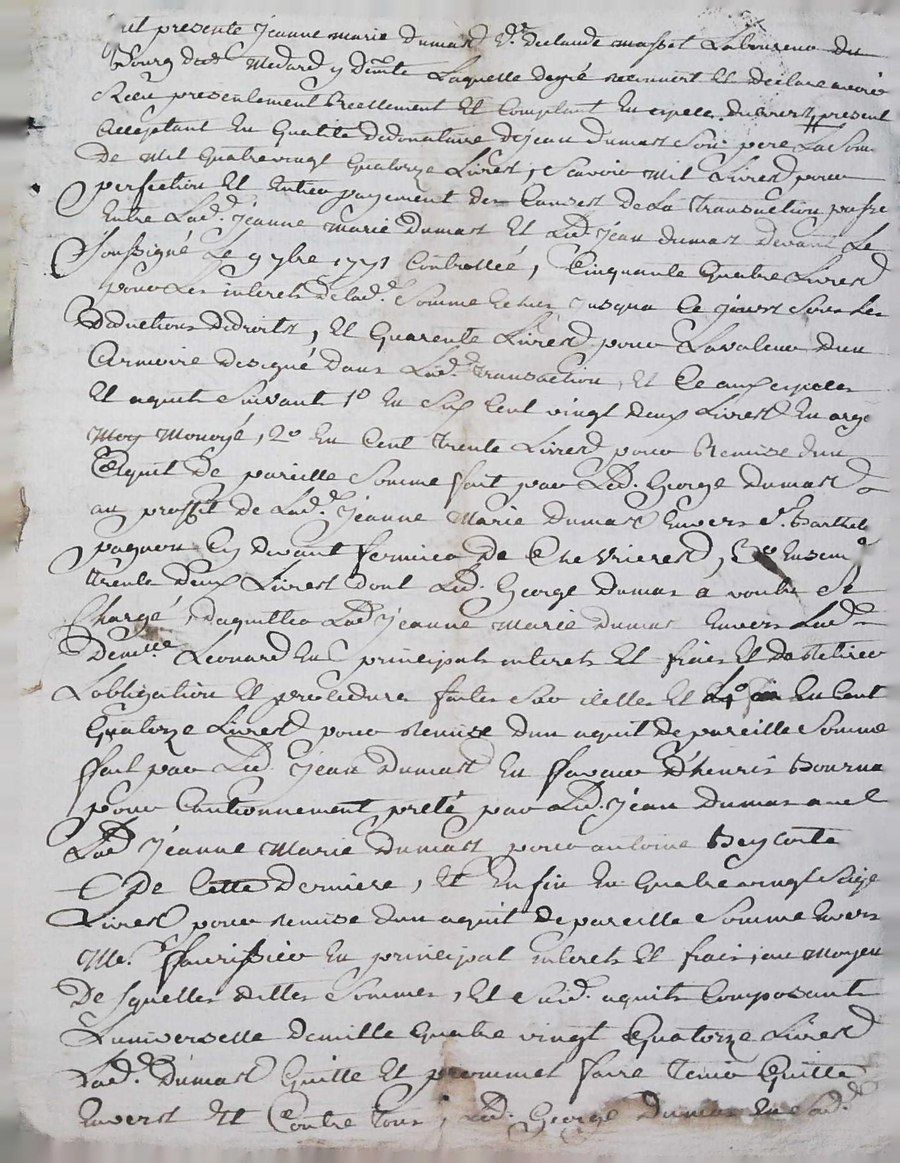 fut presente Jeanne marie dumas v.e declaude masset Laboureur du
Bourg dud. Medard y dem.te Laquelle degré reconnoit et declare avoir
Receu presentement Reellement et comptant en especes du present
acceptant en qualité dedonataire dejean dumas Son pere La Som
De mil quatrevingt quatorze Livres, Scavoir mil Livres pour
perfection et entier payement des causes de La transaction passé
Entre Lad.e Jeanne Marie Dumas et Led. jean dumas devant Le
Soussigné Le 9 7bre 1771 Controllée, Cinquante quatre Livres
pour Les interets de lad.e Somme echus jusqua Ce jours Sous Les
Deductions dedroits, et quarente Livres pour Lavaleur dun
Armoire designé dans Lad.e transaction, et Ce aux especes
Et aquits Suivant 1o En Six Cent vingt deux Livres En arge
Monoyé, 2o En Cent trente Livres pour Remise dun
aquit De pareille Somme fait par Led. George Dumas
au proffit de Lad.e Jeanne Marie Dumas Envers S.r Barthel
pagnon Cy devant fermier de Chevrieres, 3o
trente deux Livres dont Led. George Dumas a voulu Et
Chargé, daquitter Lad. Jeanne Marie Dumas Envers Lad.e
Dem.lle Leonard En principal interets Et frais Et de Retirer
Lobligation Et procedure faites Sur icelles Et 4o En Cent
Quatorze Livres pour Remise dun aquit depareille Somme
fait par Led. Jean Dumas En faveur d'henris Bourna
pour Cautionnement preté par Led. Jean Dumas avec
Lad. Jeanne Marie Dumas pour antoine
De Cette Derniere, Et Enfin En quatrevingt Seize
Livres pour Remise dun aquit depareille Somme Envers
Me. En principal interets Et frais, au Moyen
Desquelles dittes Sommes, Et Susd. aquits Composants
Luniverselle demille quatre vingt Quatorze Livres
Lad.e Dumas Quitte Et prommet faire tenir Quitte
Envers Et Contre tous, Led. George Dumas En Lad.e